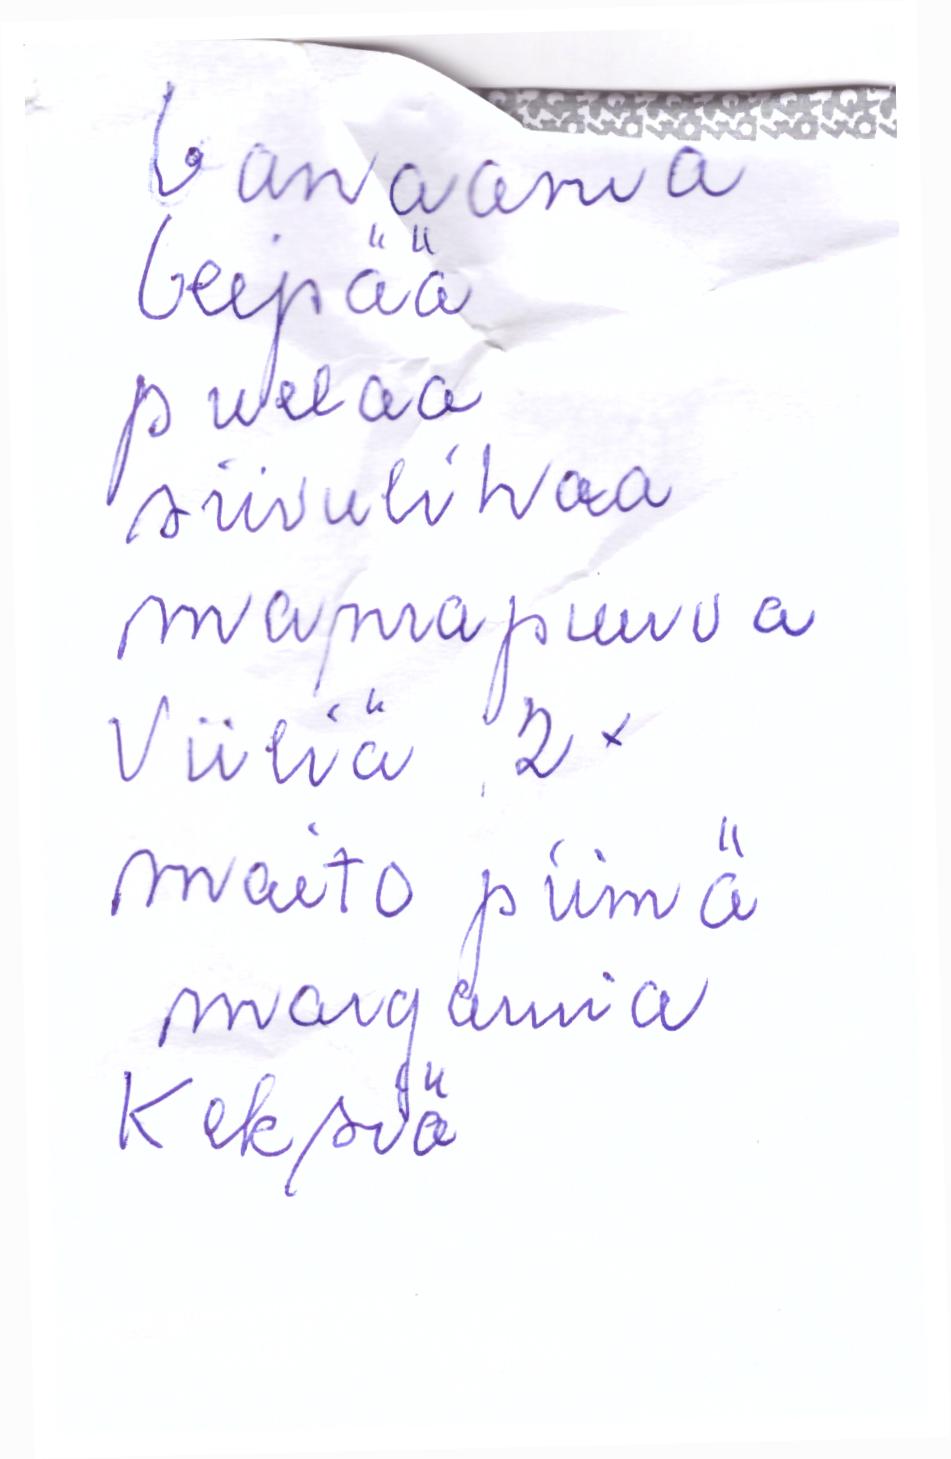 banaania
leipää
pullaa
siivulihaa
mannapuuroa
Viiliä 2x
maito piimä
margariinia
Keksiä